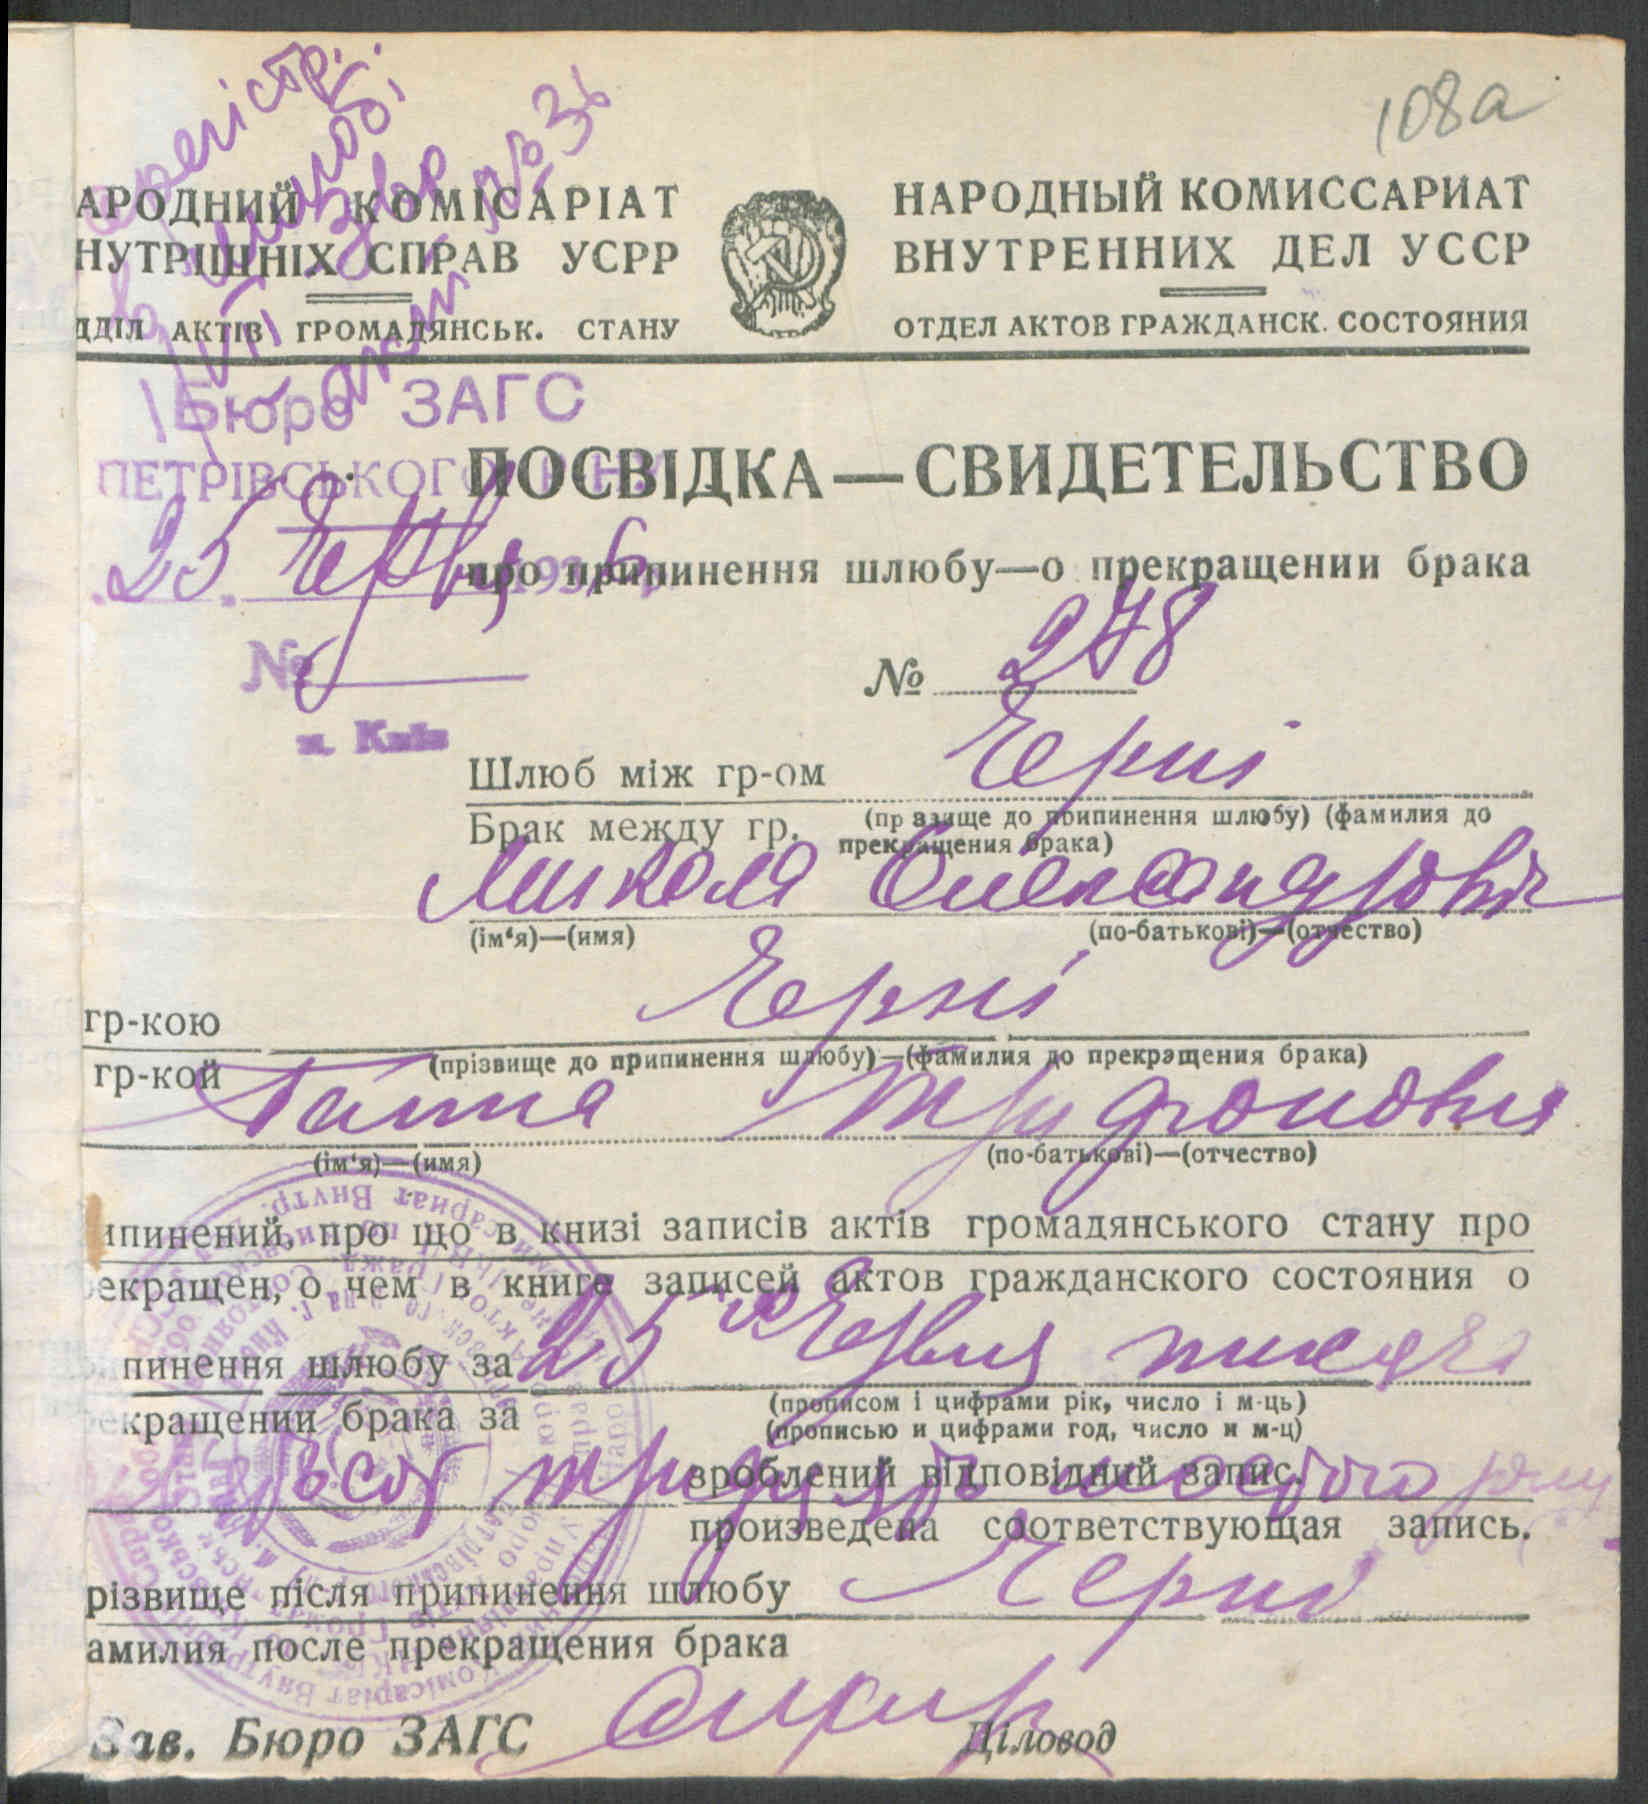 108а
НАРОДНЫЙ КОМИССАРИАТ
ВНУТРЕННИХ ДЕЛ УССР
ОТДЕЛ АКТОВ ГРАЖДАНСК. СОСТОЯНИЯ
АРОДНИЙ КОМІСАРІАТ
НУТРІШНІХ СПРАВ УСРР
ДДІЛ АКТІВ ГРОМАДЯНСЬК. СТАНУ
Бюро ЗАГС
ПЕТРІВСЬКОГО
ПОСВІДКА—СВИДЕТЕЛЬСТВО
25 Червня 1936
про припинення шлюбу—о прекращении брака
№
№ 278
м. Київ
Шлюб між гр-ом Черні
Брак между гр.
(прізвище до припинення шлюбу) (фамилия до
прекращения брака)
Микола Олександрович
(ім‘я)—(имя) (по-батькові)—(отчество)
гр-кою Черні
гр-кой
(прізвище до припинення шлюбу)—(фамилия до прекращения брака)
Ганна Трифоновня
(ім‘я)—(имя) (по-батькові)—(отчество)
ипинений, про що в книзі записів актів громадянського стану про
екращен, о чем в книге записей актов гражданского состояния о
пинення шлюбу за 25 го Червня тисяча
екращении брака за
(прописом і цифрами рік, число і м-ць)
(прописью и цифрами год, число и м-ц)
тридцять шостого року
зроблений відповідний запис.
произведена соответствующая запись.
різвище після припинення шлюбу Черні
амилия после прекращения брака
Зав. Бюро ЗАГС Діловод